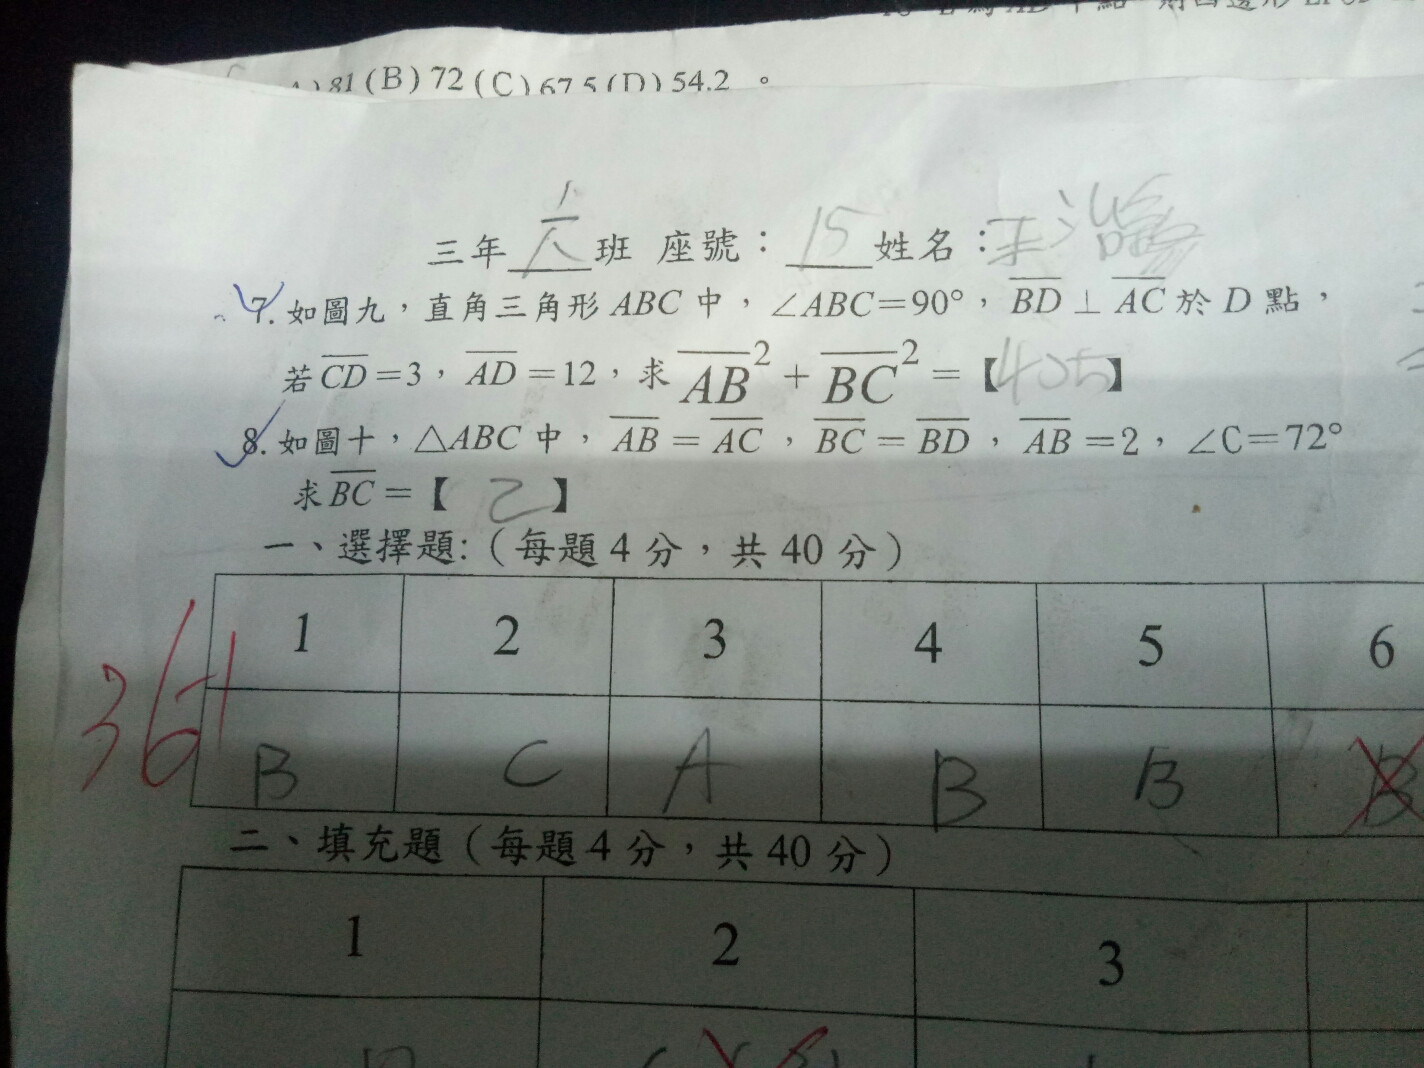 81 (B) 72 (C) 67.5 (D) 54.2 。
三年 六 班 座號： 15 姓名：
7. 如圖九，直角三角形 ABC 中，∠ABC=90°，BD ⊥ AC 於 D 點，
若 CD =3，AD =12，求 AB² + BC² =【405】
8. 如圖十，△ABC 中，AB = AC，BC = BD，AB =2，∠C=72°
求 BC =【 2 】
一、選擇題:（每題 4 分，共 40 分）
1 2 3 4 5 6
B C A B B B
36
二、填充題（每題 4 分，共 40 分）
1 2 3